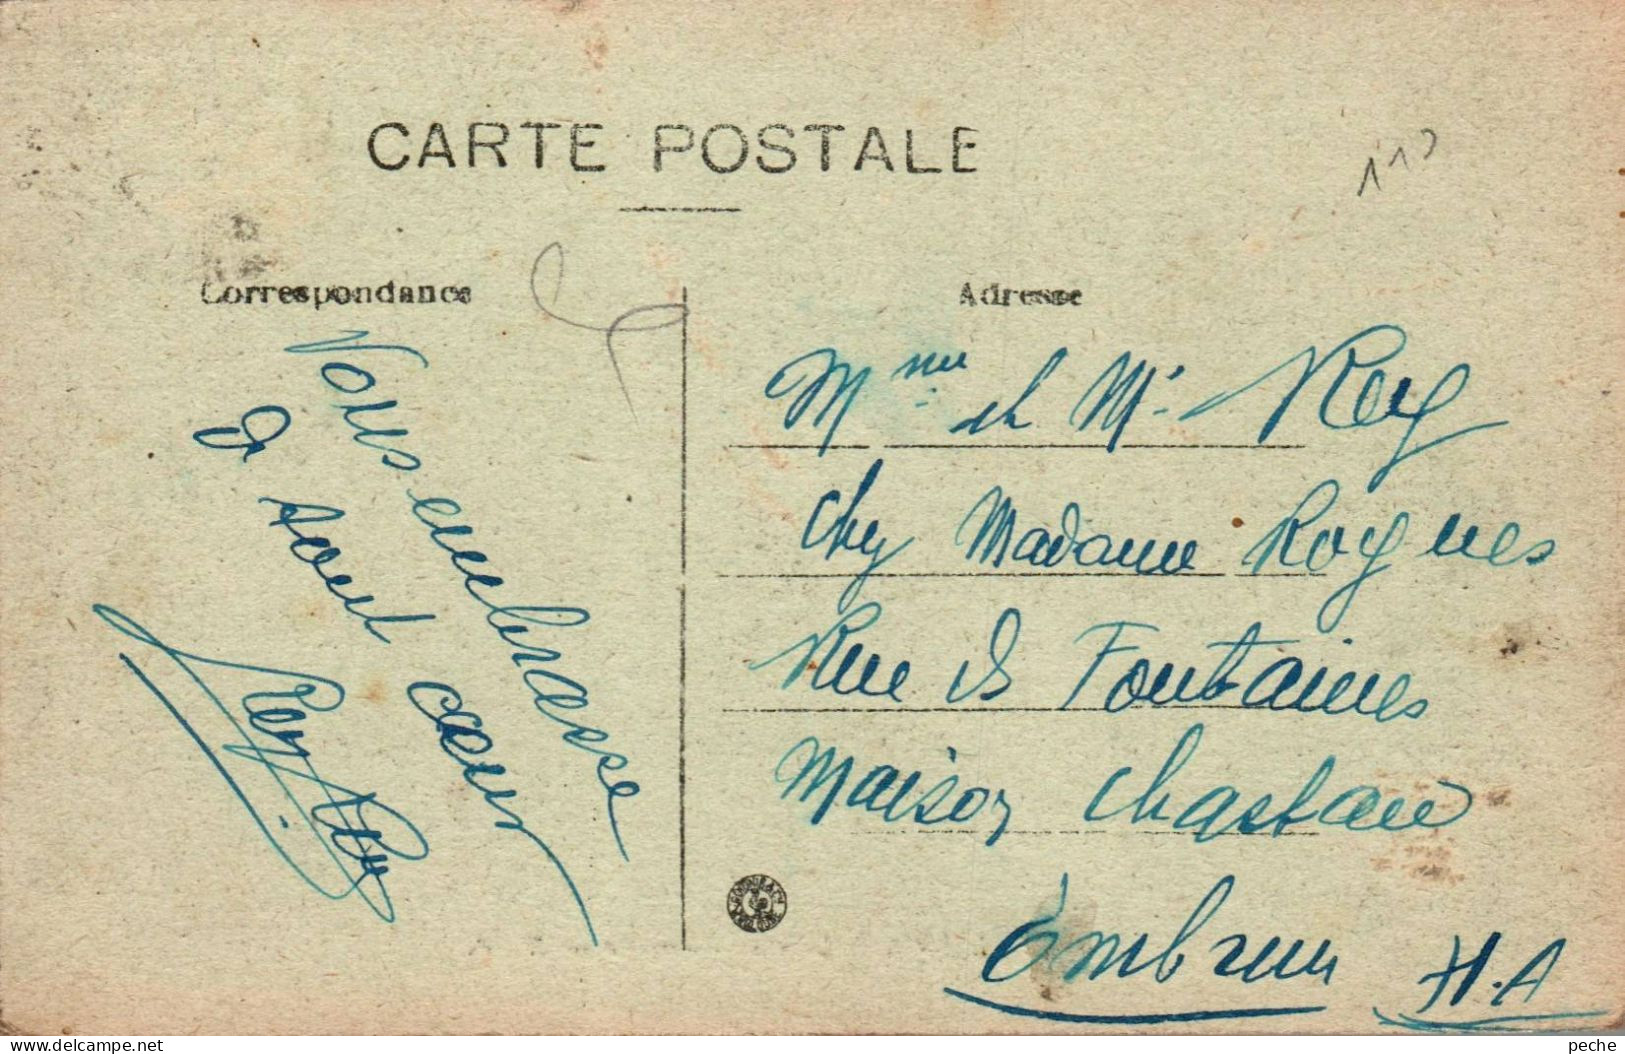 CARTE POSTALE
113
Correspondance
Adresse
Vous embrasse
de tout cœur
Mme et Mr Rey
chez Madame Roques
Rue des Fontaines
Maison Chastan
Embrun H.A
delcampe.net
peche